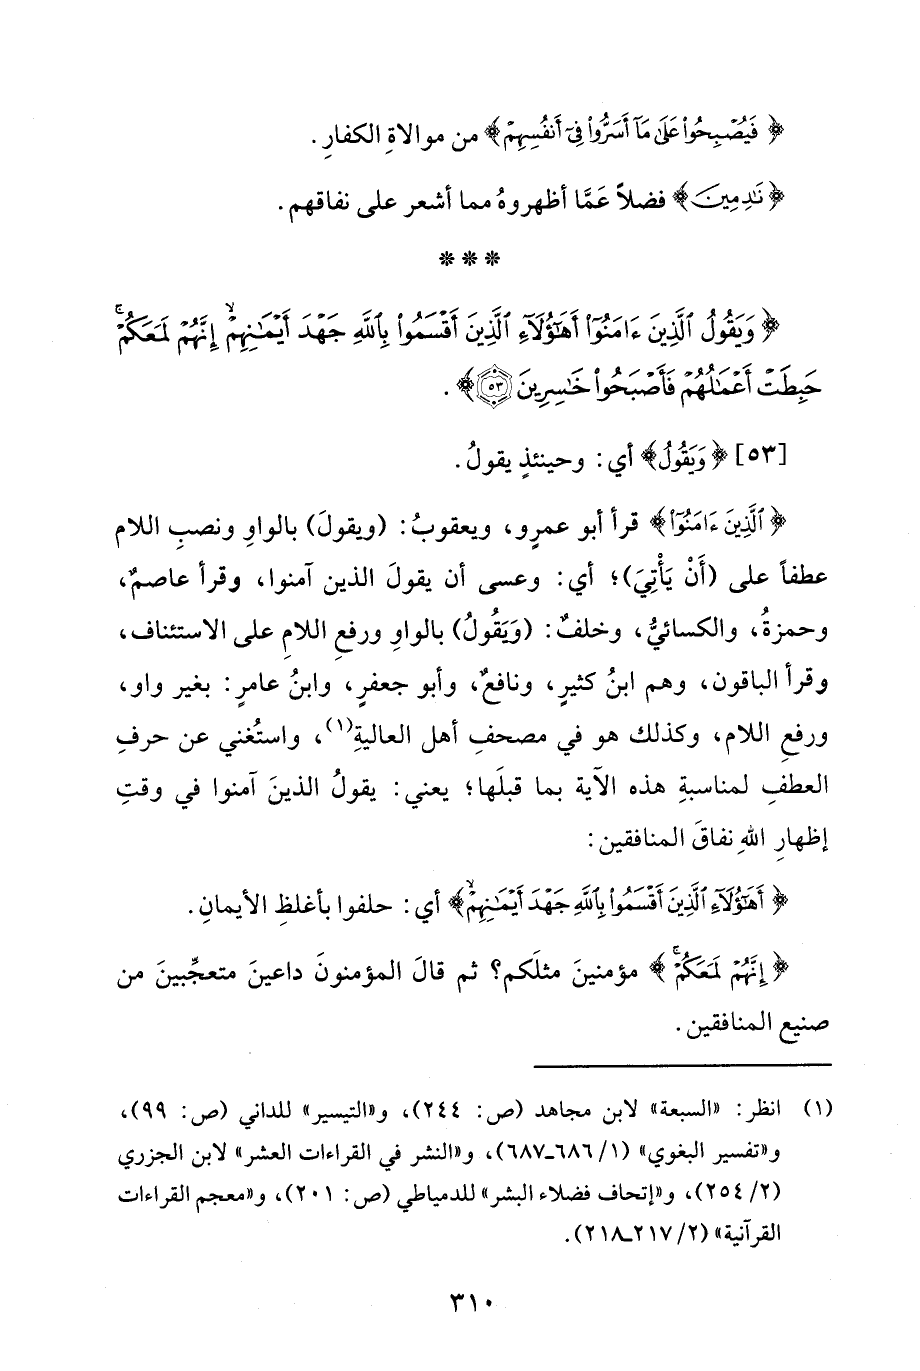 ﴿ فَيُصْبِحُوا۟ عَلَىٰ مَآ أَسَرُّوا۟ فِىٓ أَنفُسِهِمْ ﴾ من موالاةِ الكفارِ .
﴿ نَـٰدِمِينَ ﴾ فضلاً عَمَّا أظهروهُ مما أشعر على نفاقهم .
* * *
﴿ وَيَقُولُ ٱلَّذِينَ ءَامَنُوٓا۟ أَهَـٰٓؤُلَآءِ ٱلَّذِينَ أَقْسَمُوا۟ بِٱللَّهِ جَهْدَ أَيْمَـٰنِهِمْ ۙ إِنَّهُمْ لَمَعَكُمْ ۚ
حَبِطَتْ أَعْمَـٰلُهُمْ فَأَصْبَحُوا۟ خَـٰسِرِينَ ٥٣ ﴾ .
[٥٣] ﴿ وَيَقُولُ ﴾ أي: وحينئذٍ يقولُ .
﴿ ٱلَّذِينَ ءَامَنُوٓا۟ ﴾ قرأ أبو عمرٍو، ويعقوبُ: (ويقولَ) بالواوِ ونصبِ اللام
عطفاً على (أَنْ يَأْتِيَ)؛ أي: وعسى أن يقولَ الذين آمنوا، وقرأ عاصمٌ،
وحمزةُ، والكسائيُّ، وخلفٌ: (وَيَقُولُ) بالواوِ ورفعِ اللامِ على الاستئناف،
وقرأ الباقون، وهم ابنُ كثيرٍ، ونافعٌ، وأبو جعفرٍ، وابنُ عامرٍ: بغير واو،
ورفعِ اللام، وكذلك هو في مصحفِ أهل العاليةِ(١)، واستُغني عن حرفِ
العطفِ لمناسبةِ هذه الآية بما قبلَها؛ يعني: يقولُ الذينَ آمنوا في وقتِ
إظهارِ اللهِ نفاقَ المنافقين:
﴿ أَهَـٰٓؤُلَآءِ ٱلَّذِينَ أَقْسَمُوا۟ بِٱللَّهِ جَهْدَ أَيْمَـٰنِهِمْ ۙ ﴾ أي: حلفوا بأغلظِ الأيمانِ .
﴿ إِنَّهُمْ لَمَعَكُمْ ۚ ﴾ مؤمنينَ مثلَكم؟ ثم قالَ المؤمنونَ داعينَ متعجِّبينَ من
صنيع المنافقين .
(١) انظر: «السبعة» لابن مجاهد (ص: ٢٤٤)، و«التيسير» للداني (ص: ٩٩)،
و«تفسير البغوي» (١/ ٦٨٦ـ٦٨٧)، و«النشر في القراءات العشر» لابن الجزري
(٢/ ٢٥٤)، و«إتحاف فضلاء البشر» للدمياطي (ص: ٢٠١)، و«معجم القراءات
القرآنية» (٢/ ٢١٧ـ٢١٨).
٣١٠